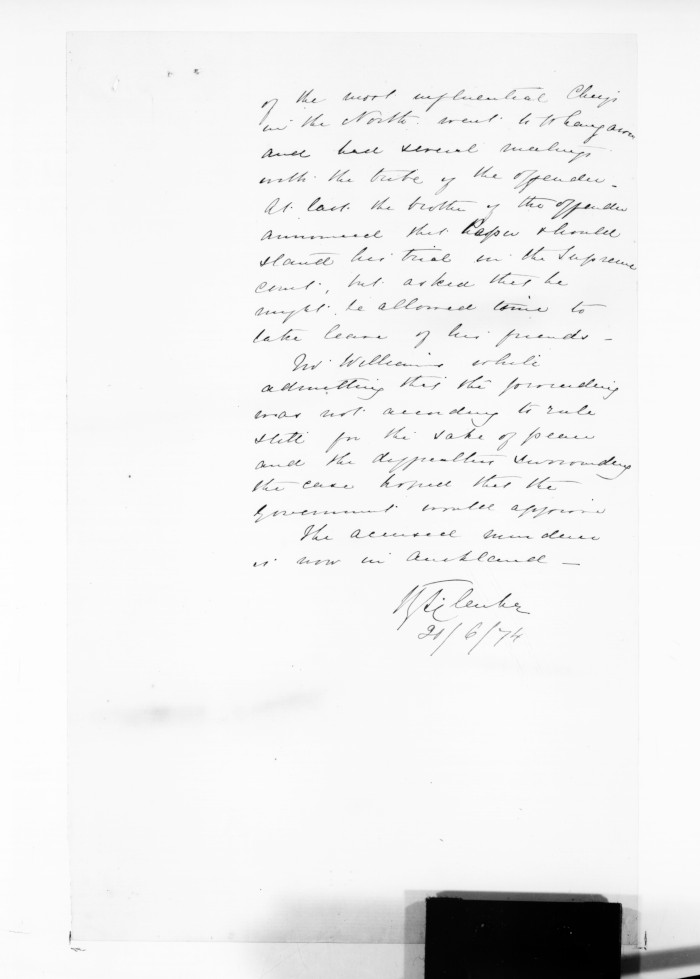 of the most influential Chiefs
in the North went to Whangaroa
and had several meetings
with the tribe of the offender –
At last the brother of the offender
announced that should
stand his trial in the Supreme
court, but asked that he
might be allowed time to
take leave of his friends –
Mr Williams while
admitting that the proceeding
was not according to rule
still for the sake of peace
and the difficulties surrounding
the case hoped that the
Government would approve
The accused murderer
is now in Auckland –
21/6/74